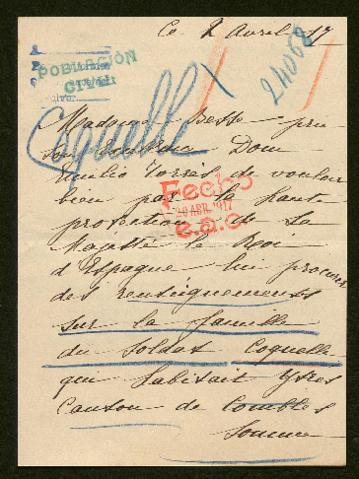 Ce 2 Avril 17
POBLACIÓN
CIVIL
24068
Coquelle
Madame Besse prie
son Excellence Don
Emilio Torrès de vouloir
bien par la haute
protection de Sa
Majesté le Roi
d'Espagne, lui procurer
des renseignements
sur la famille
du soldat Coquelle
qui habitait Ytres
Canton de Combles
Somme
Fecho
20 ABR. 1917
e.a.c.